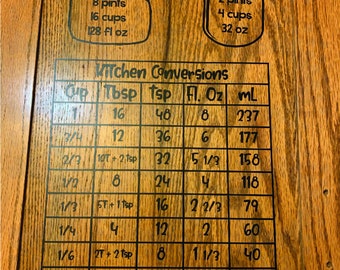 8 pints
16 cups
128 fl oz
2 pints
4 cups
32 oz
Kitchen Conversions
Cup Tbsp tsp Fl. Oz mL
1 16 48 8 237
3/4 12 36 6 177
2/3 10T + 2 tsp 32 5 1/3 158
1/2 8 24 4 118
1/3 5T + 1 tsp 16 2 2/3 79
1/4 4 12 2 60
1/6 2T + 2 tsp 8 1 1/3 40